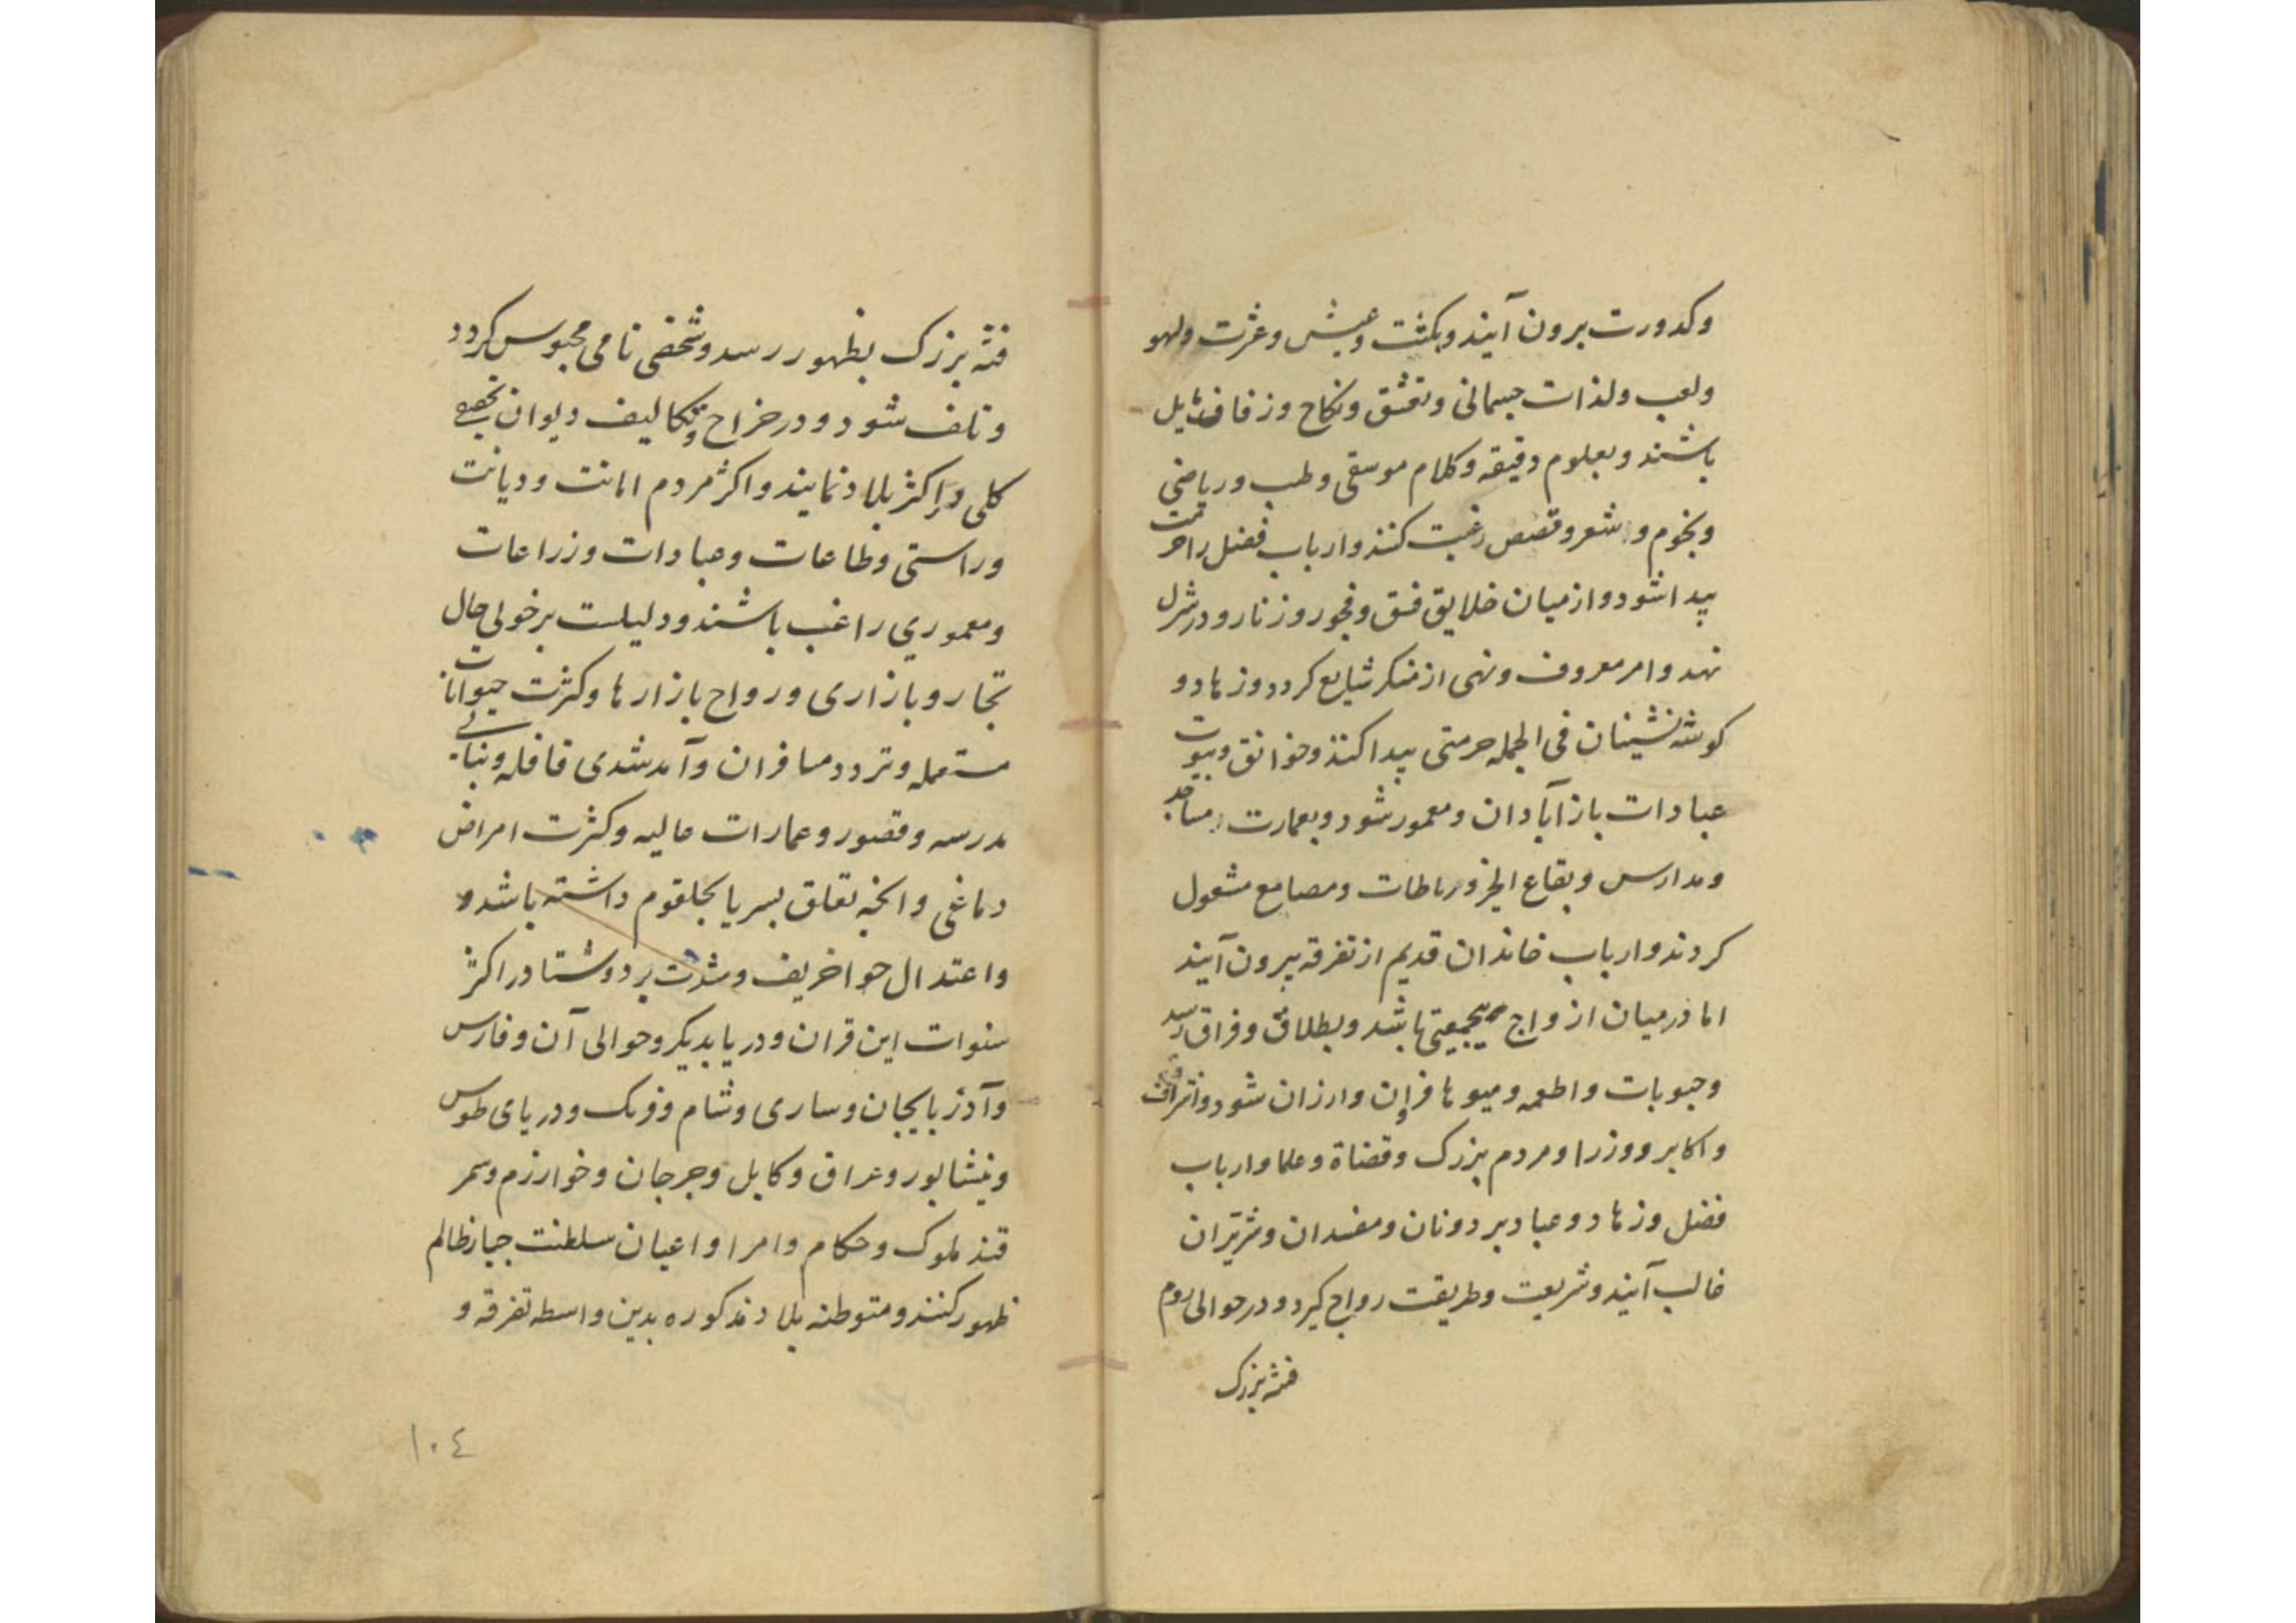 وکدورت برون آیند وبکشت وعیش وعشرت ولهو
ولعب ولذات جسمانی وتعشق ونکاح وزفاف مایل
باشند وبعلوم دقیقه وکلام موسقی وطب وریاضی
ونجوم وشعر وقصص رغبت کنند وارباب فضل را حرمت
پیدا شود واز میان خلایق فسق وفجور وزنا رو در تنزل
نهد وامر معروف ونهی از منکر شایع کردد وزهاد و
کوشه نشینان فی الجمله حرمتی پیدا کنند وخوانق وبیوت
عبادات باز آبادان ومعمور شود وبعمارت مساجد
ومدارس وبقاع الخیر ورباطات ومصانع مشغول
کردند وارباب خاندان قدیم از تفرقه بیرون آیند
اما در میان ازواج بیجمعیتی باشد وبطلاق وفراق رسد
وحبوبات واطعمه ومیوها فراوان وارزان شود واشراف
واکابر ووزرا ومردم بزرک وقضاة وعلما وارباب
فضل وزهاد وعباد بر دونان ومفسدان وشریران
غالب آیند وشریعت وطریقت رواج کیرد ودر حوالی روم
فتنه بزرک
فتنه بزرک بظهور رسد وشخصی نامی محبوس کردد
وتلف شود ودر خراج وتکالیف دیوان تخفیفی
کلی در اکثر بلاد نمایند واکثر مردم امانت ودیانت
وراستی وطاعات وعبادات وزراعات
ومعموري راغب باشند ودلیلست بر خوبی حال
تجار وبازاری ورواج بازارها وکثرت حیوانات
مستعمله وتردد مسافران وآمد شدی قافله وبنای
مدرسه وقصور وعمارات عالیه وکثرت امراض
دماغی وانچه تعلق بسر یا بحلقوم داشته باشد و
واعتدال هوا خریف وشدت برد وشتا در اکثر
سنوات این قران ودر یابدیکر وحوالی آن وفارس
وآذربایجان وساری وشام وفرنک ودریای طوس
ونیشابور وعراق وکابل وجرجان وخوارزم وسمر
قند ملوک وحکام وامرا واعیان سلطنت جبار ظالم
ظهور کنند ومتوطنه بلاد مذکوره بدین واسطه تفرقه و
١٠٤